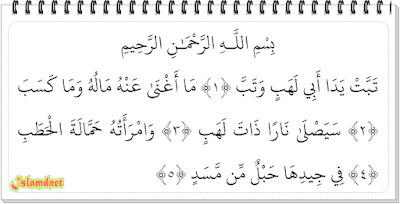 بِسْمِ اللَّـهِ الرَّحْمَـٰنِ الرَّحِيمِ
تَبَّتْ يَدَا أَبِي لَهَبٍ وَتَبَّ ﴿١﴾ مَا أَغْنَىٰ عَنْهُ مَالُهُ وَمَا كَسَبَ
﴿٢﴾ سَيَصْلَىٰ نَارًا ذَاتَ لَهَبٍ ﴿٣﴾ وَامْرَأَتُهُ حَمَّالَةَ الْحَطَبِ
﴿٤﴾ فِي جِيدِهَا حَبْلٌ مِّن مَّسَدٍ ﴿٥﴾
Islamdnet